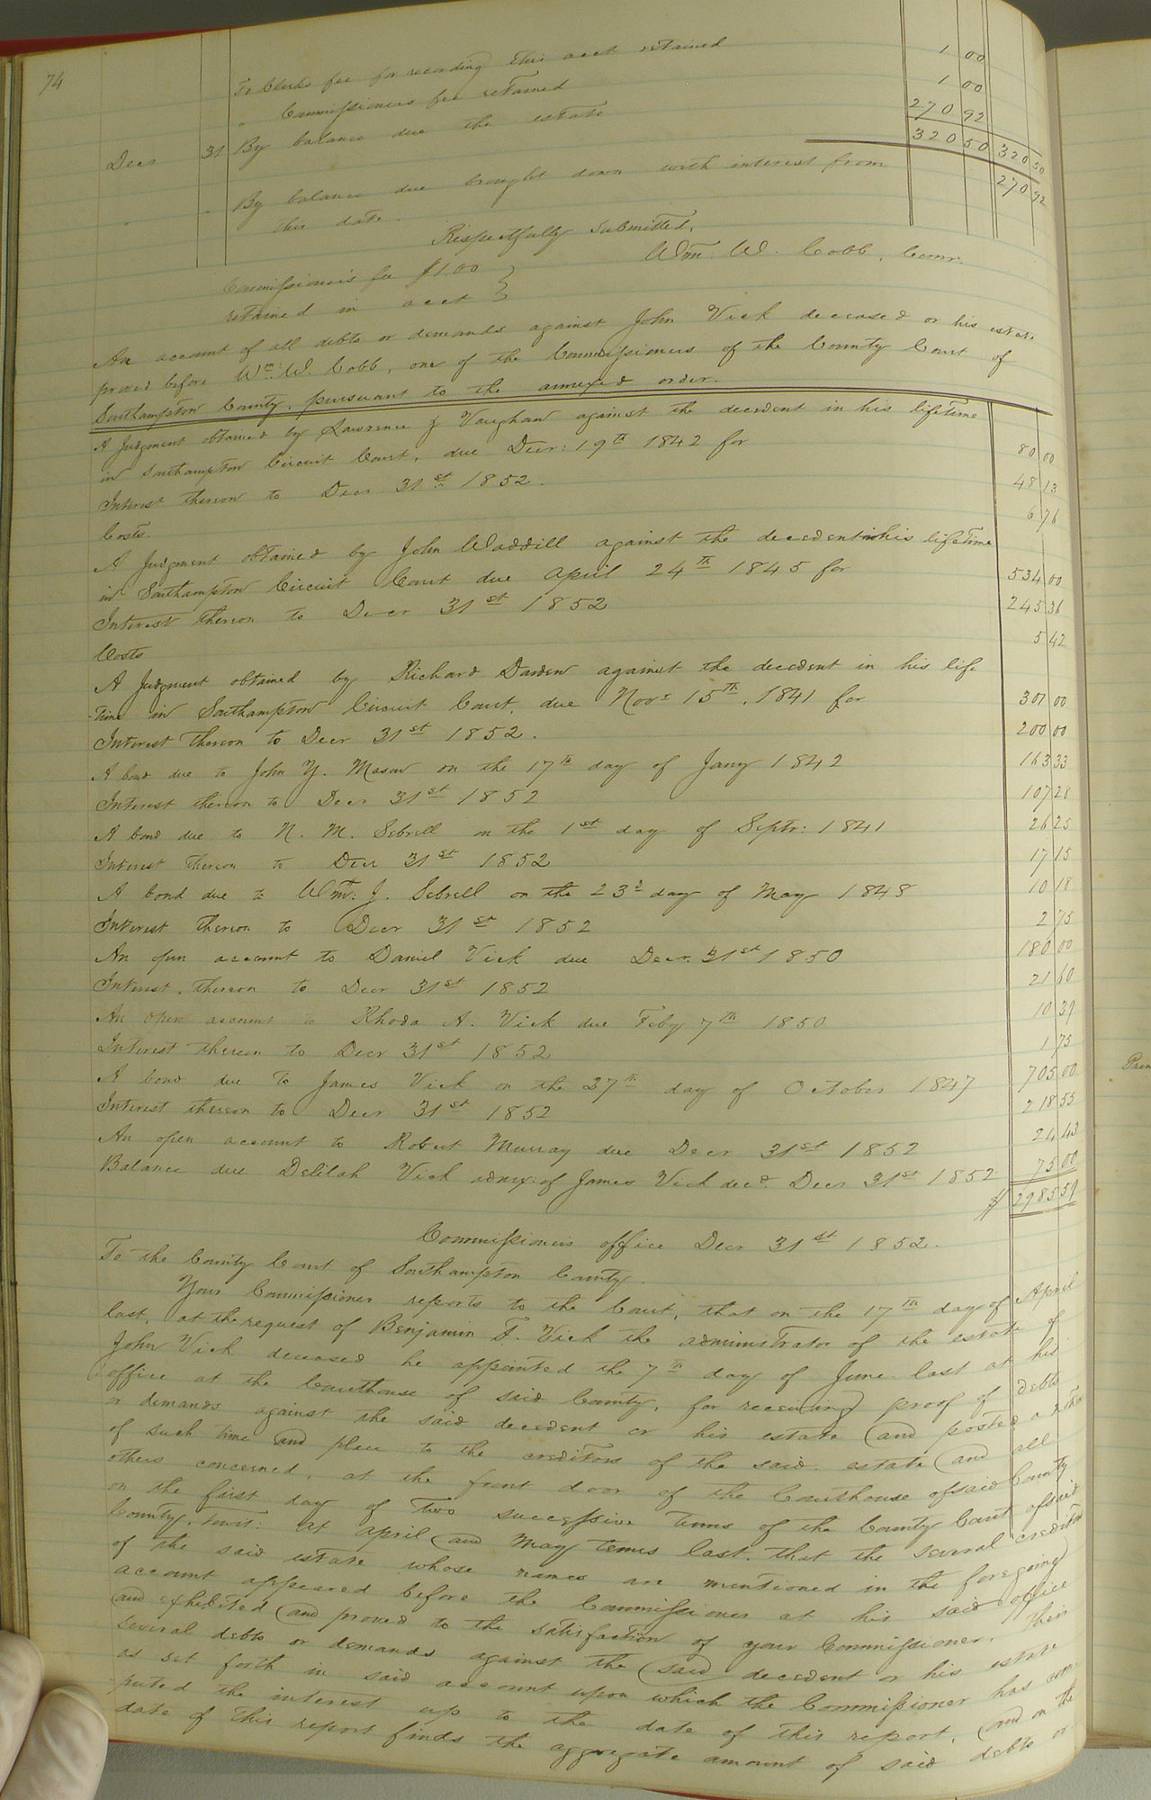 74
To Clerks fee for recording this acct retained 1 00
" Commissioners fee retained 1 00
Decr 31 By balance due the estate 270 92
320 50 320 50
" " By balance due brought down with interest from 270 92
this date.
Respectfully submitted,
Wm. W. Cobb, Comr.
Commissioner's fee $1.00
retained in acct
An account of all debts or demands against John Vick deceased or his estate
proved before Wm. W. Cobb, one of the Commissioners of the County Court of
Southampton County, pursuant to the annexed order.
A Judgment obtained by Lawrence & Vaughan against the decedent in his lifetime
in Southampton Circuit Court, due Decr: 19th 1842 for 80 00
Interest thereon to Decr 31st 1852. 48 13
Costs. 6 76
A Judgment obtained by John Waddill against the decedent in his lifetime
in Southampton Circuit Court due April 24th 1845 for 534 00
Interest thereon to Decr 31st 1852 245 36
Costs 5 42
A Judgment obtained by Richard Darden against the decedent in his life
time in Southampton Circuit Court, due Novr 15th, 1841 for 301 00
Interest thereon to Decr 31st 1852. 200 00
A bond due to John Y. Mason on the 17th day of Jany 1842 163 33
Interest thereon to Decr 31st 1852 107 28
A bond due to N. M. Sebrell on the 1st day of Septr: 1841 26 25
Interest thereon to Decr 31st 1852 17 15
A bond due to Wm. J. Sebrell on the 23d day of May 1848 10 18
Interest thereon to Decr 31st 1852 2 75
An open account to Daniel Vick due Decr. 31st 1850 180 00
Interest thereon to Decr 31st 1852 21 60
An open account to Rhoda A. Vick due Feby 7th 1850 10 39
Interest thereon to Decr 31st 1852 1 75
A bond due to James Vick on the 27th day of October 1847 705 00
Interest thereon to Decr 31st 1852 218 55
An open account to Robert Murray due Decr 31st 1852 24 43
Balance due Delilah Vick admx: of James Vick decd. Decr 31st 1852 75 00
$ 2985 59
Commissioners office Decr 31st 1852.
To the County Court of Southampton County.
Your Commissioner reports to the Court, that on the 17th day of April
last, at the request of Benjamin F. Vick the administrator of the estate of
John Vick deceased he appointed the 7th day of June last at his
office at the Courthouse of said County, for receiving proof of debts
or demands against the said decedent or his estate and posted a notice
of such time and place to the creditors of the said estate and all
others concerned, at the front door of the Courthouse of said County
on the first day of two successive terms of the County Court of said
County, towit: at April and May terms last. that the several creditors
of the said estate whose names are mentioned in the foregoing
account appeared before the Commissioner at his said office
and exhibited and proved to the satisfaction of your Commissioner, their
several debts or demands against the said decedent or his estate
as set forth in said account upon which the Commissioner has com
puted the interest up to the date of this report, and on the
date of this report finds the aggregate amount of said debts or